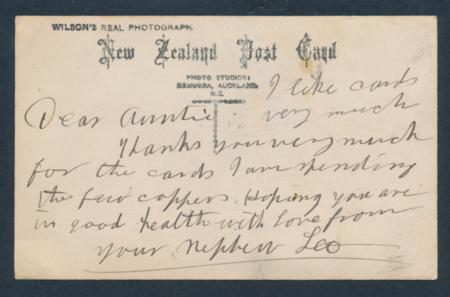 WILSON'S REAL PHOTOGRAPH.
New Zealand Post Card
PHOTO STUDIOS:
REMUERA, AUCKLAND.
N.Z.
I like cards
very much
Dear Auntie
Thanks you very much
for the cards I am spending
the few coppers. Hoping you are
in good health with love from
your Nephew Leo